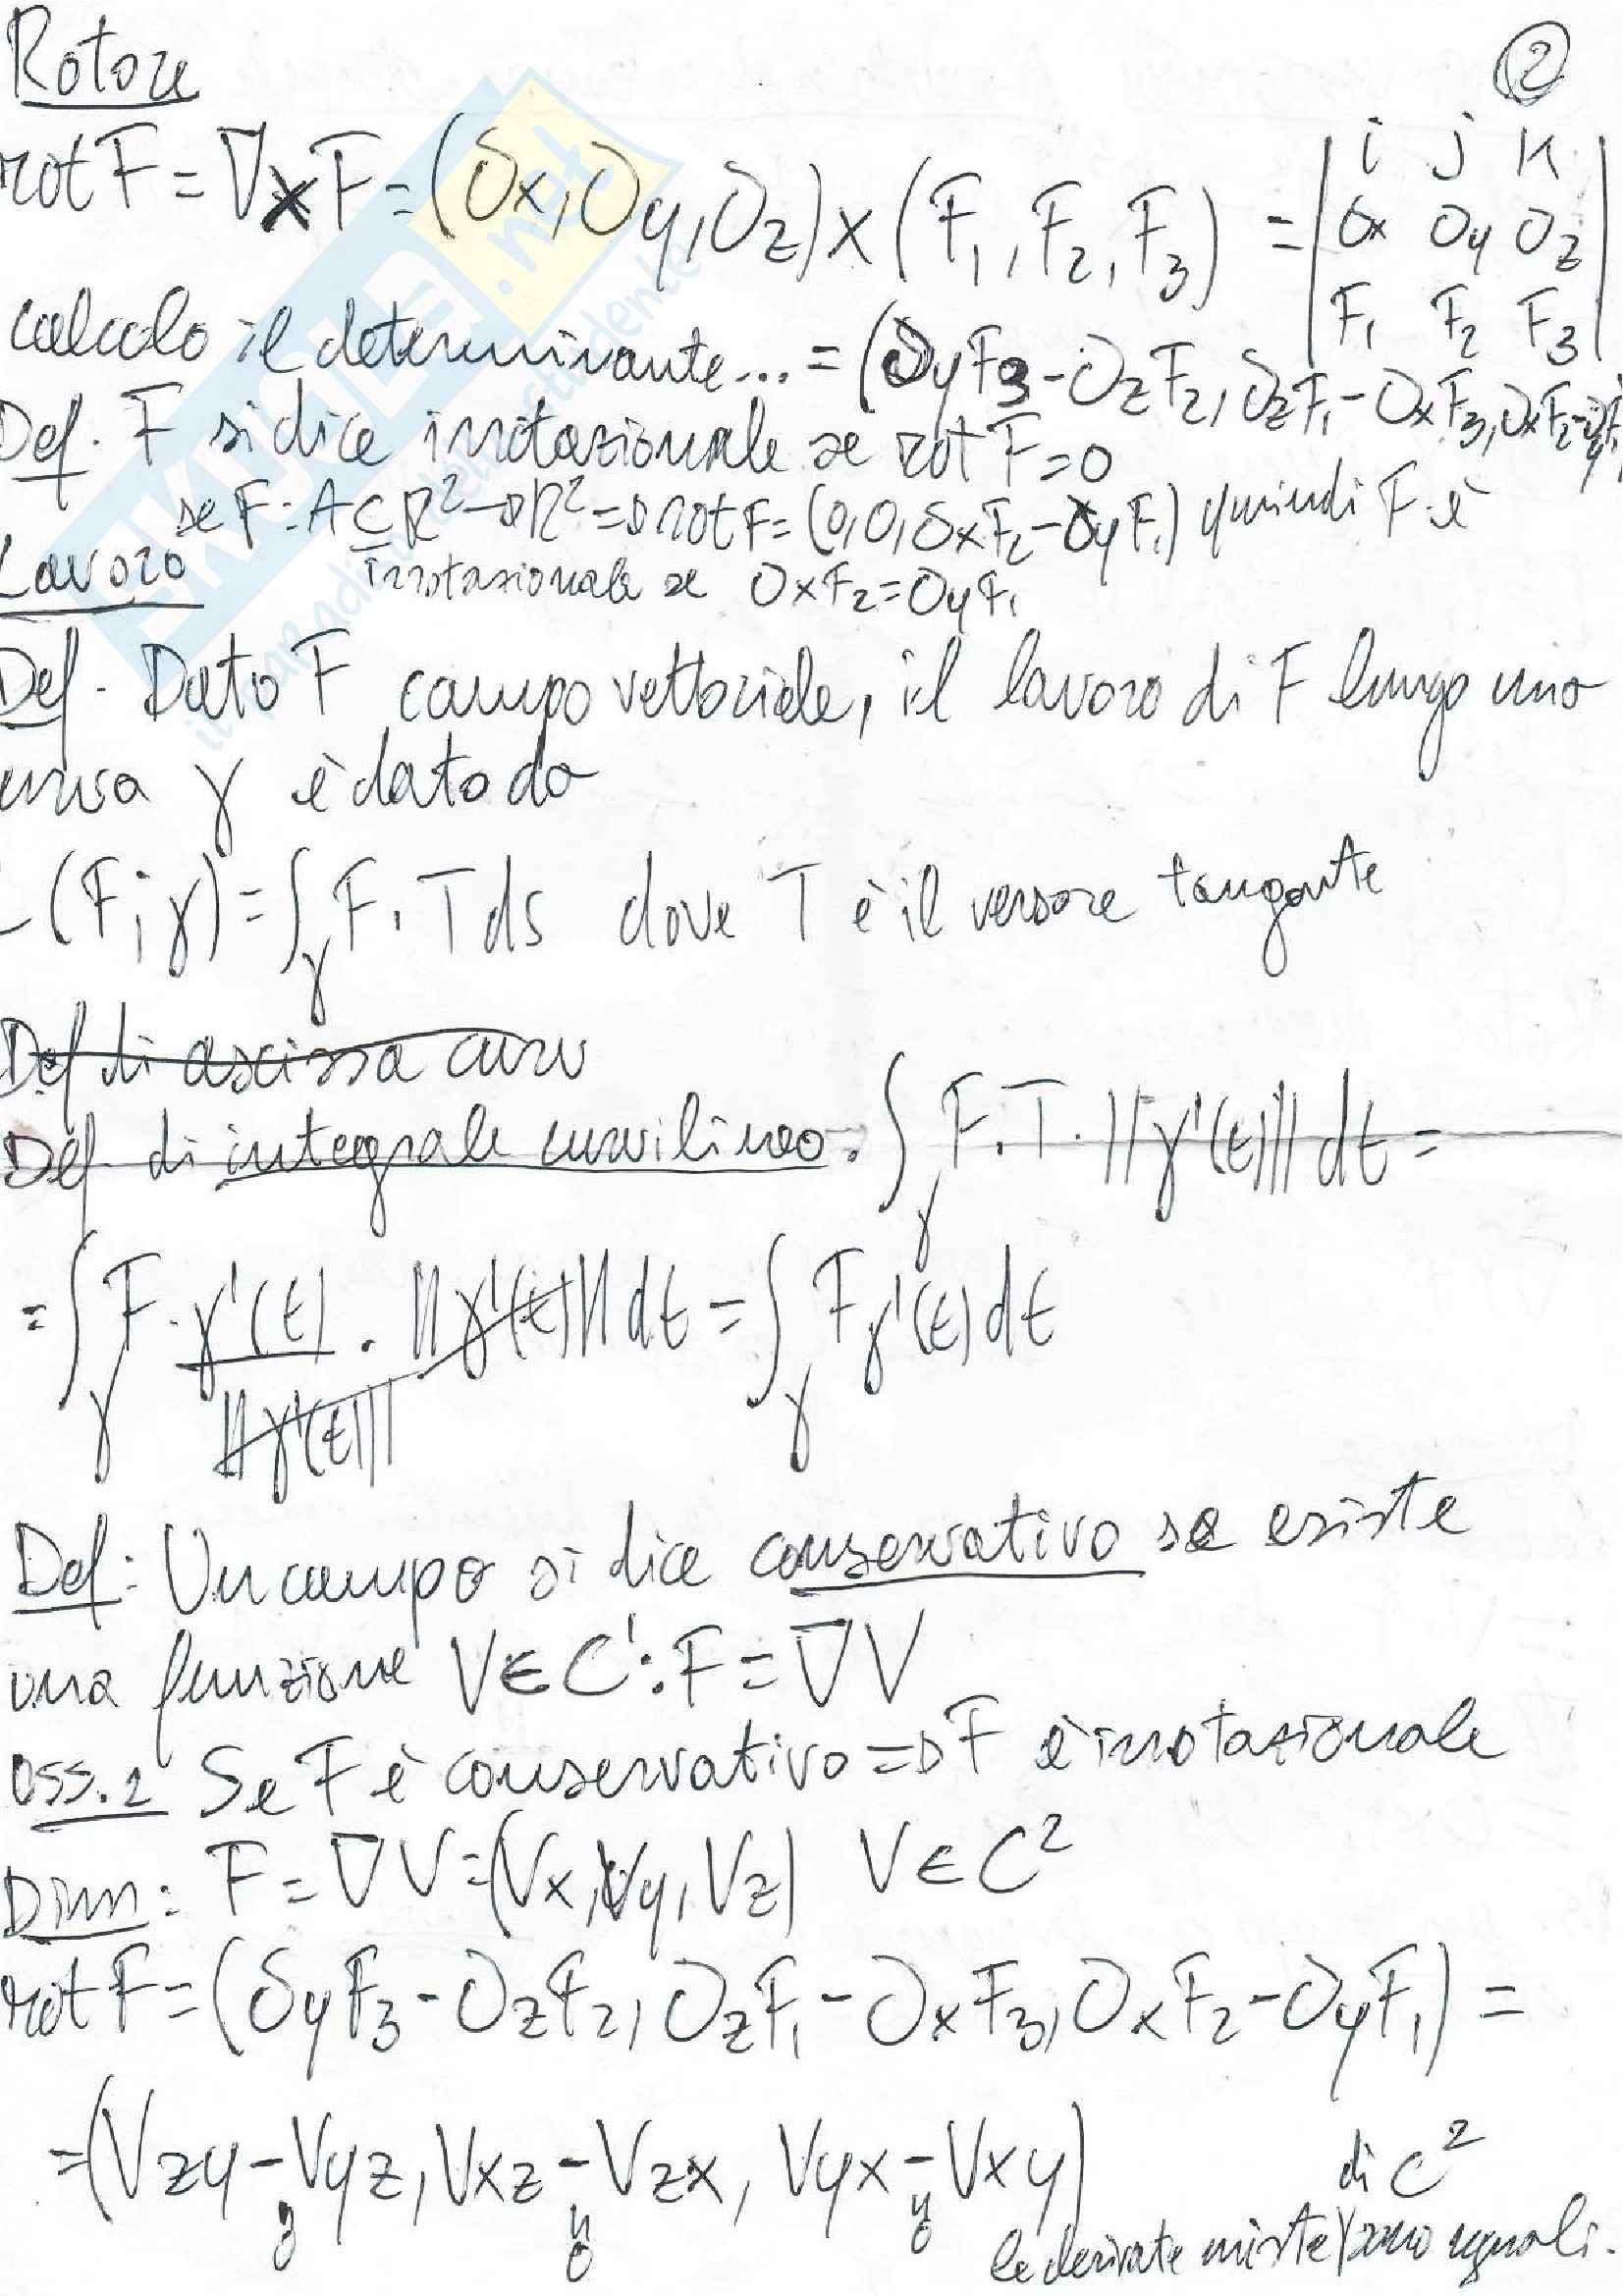 Rotore
②
rot F = ∇×F = (∂x, ∂y, ∂z) × (F₁, F₂, F₃) = | i j k
∂x ∂y ∂z
F₁ F₂ F₃ |
calcolo il determinante... = (∂yF₃ - ∂zF₂, ∂zF₁ - ∂xF₃, ∂xF₂ - ∂yF₁)
Def. F si dice irrotazionale se rot F = 0
se F: A ⊆ R² → R² ⇒ rot F = (0, 0, ∂xF₂ - ∂yF₁) quindi F è
irrotazionale se ∂xF₂ = ∂yF₁
Lavoro
Def. Dato F campo vettoriale, il lavoro di F lungo una
curva γ è dato da
L(F; γ) = ∫γ F · T ds dove T è il versore tangente
Def di ascissa curv
Def. di integrale curvilineo. ∫γ F · T · ||γ'(t)|| dt =
= ∫γ F · γ'(t)/||γ'(t)|| · ||γ'(t)|| dt = ∫γ F γ'(t) dt
Def: Un campo si dice conservativo se esiste
una funzione V ∈ C¹ : F = ∇V
Oss. 1 Se F è conservativo ⇒ F è irrotazionale
Dim: F = ∇V = (Vx, Vy, Vz) V ∈ C²
rot F = (∂yF₃ - ∂zF₂, ∂zF₁ - ∂xF₃, ∂xF₂ - ∂yF₁) =
= (Vzy - Vyz, Vxz - Vzx, Vyx - Vxy)
di C²
le derivate miste sono uguali.
SKUOLA.net
il paradiso dello studente